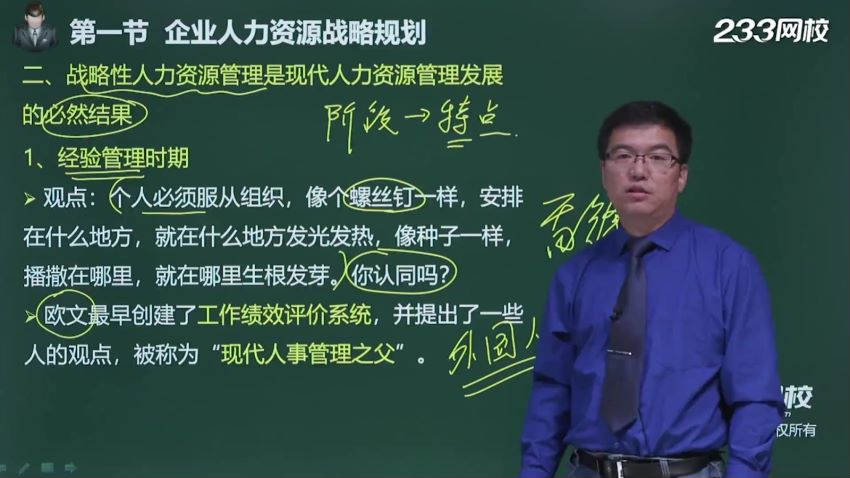 第一节 企业人力资源战略规划
233网校
二、战略性人力资源管理是现代人力资源管理发展
的必然结果
阶段→特点.
1、经验管理时期
➢ 观点：个人必须服从组织，像个螺丝钉一样，安排
在什么地方，就在什么地方发光发热，像种子一样，
播撒在哪里，就在哪里生根发芽。你认同吗？
➢ 欧文最早创建了工作绩效评价系统，并提出了一些
人的观点，被称为“现代人事管理之父”。
外国人
网校
权所有